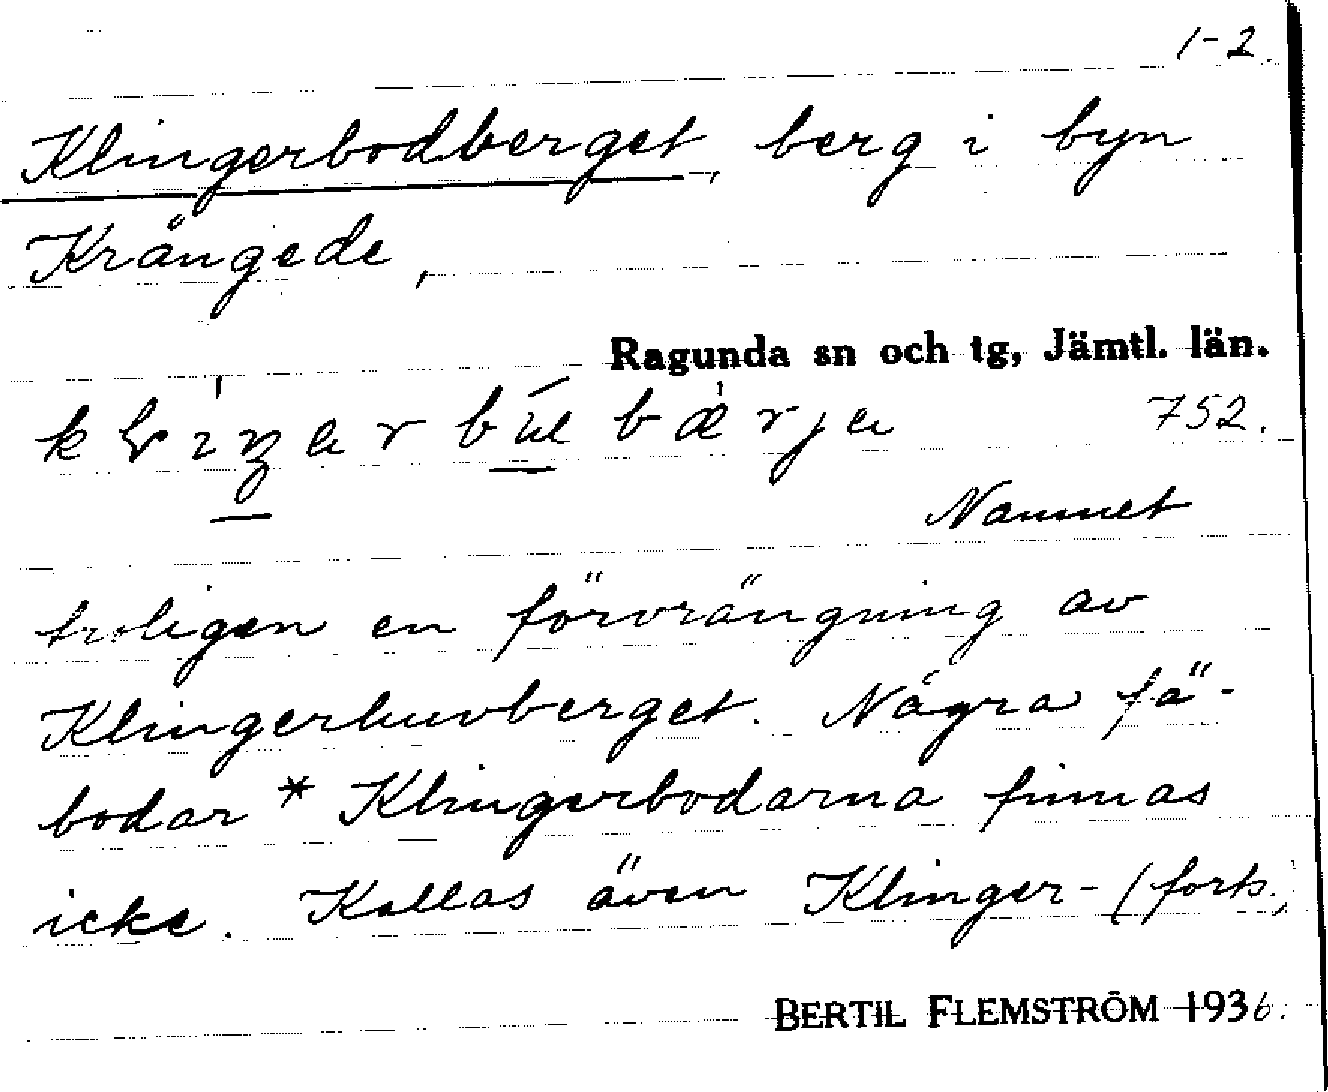 1-2.
Klingerbodberget, berg i byn
Krångede,
Ragunda sn och tg, Jämtl. län.
752.
Namnet
troligen en förvrängning av
Klingerhuvberget. Några fä-
bodar * Klingerbodarna finnas
icke. Kallas även Klinger- (forts.)
BERTIL FLEMSTRÖM 1936.